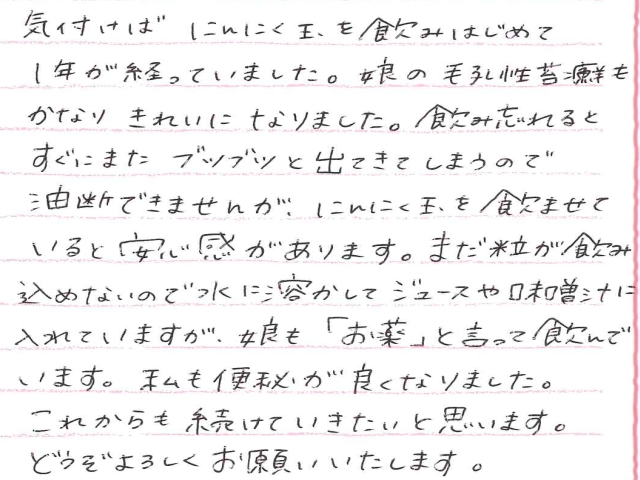 気付けば にんにく玉を飲みはじめて
1年が経っていました。娘の毛孔性苔癬も
かなり きれいに なりました。飲み忘れると
すぐにまた ブツブツと出てきてしまうので
油断できませんが、にんにく玉を飲ませて
いると安心感があります。まだ粒が飲み
込めないので水に溶かしてジュースや味噌汁に
入れていますが、娘も「お薬」と言って飲んで
います。私も便秘が良くなりました。
これからも続けていきたいと思います。
どうぞよろしくお願いいたします。